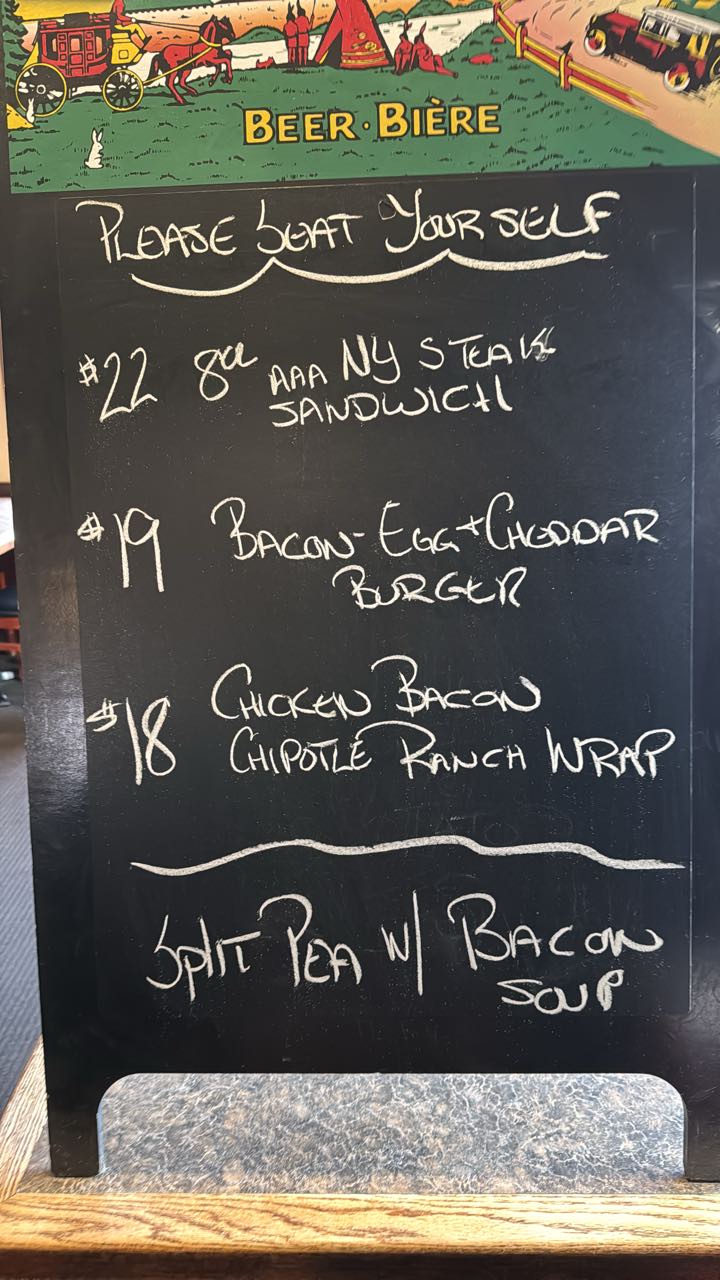 BEER · BIÈRE
PLEASE SEAT YOURSELF
$22 8oz AAA NY STEAK
SANDWICH
$19 BACON-EGG + CHEDDAR
BURGER
$18 CHICKEN BACON
CHIPOTLE RANCH WRAP
SPLIT PEA W/ BACON
SOUP